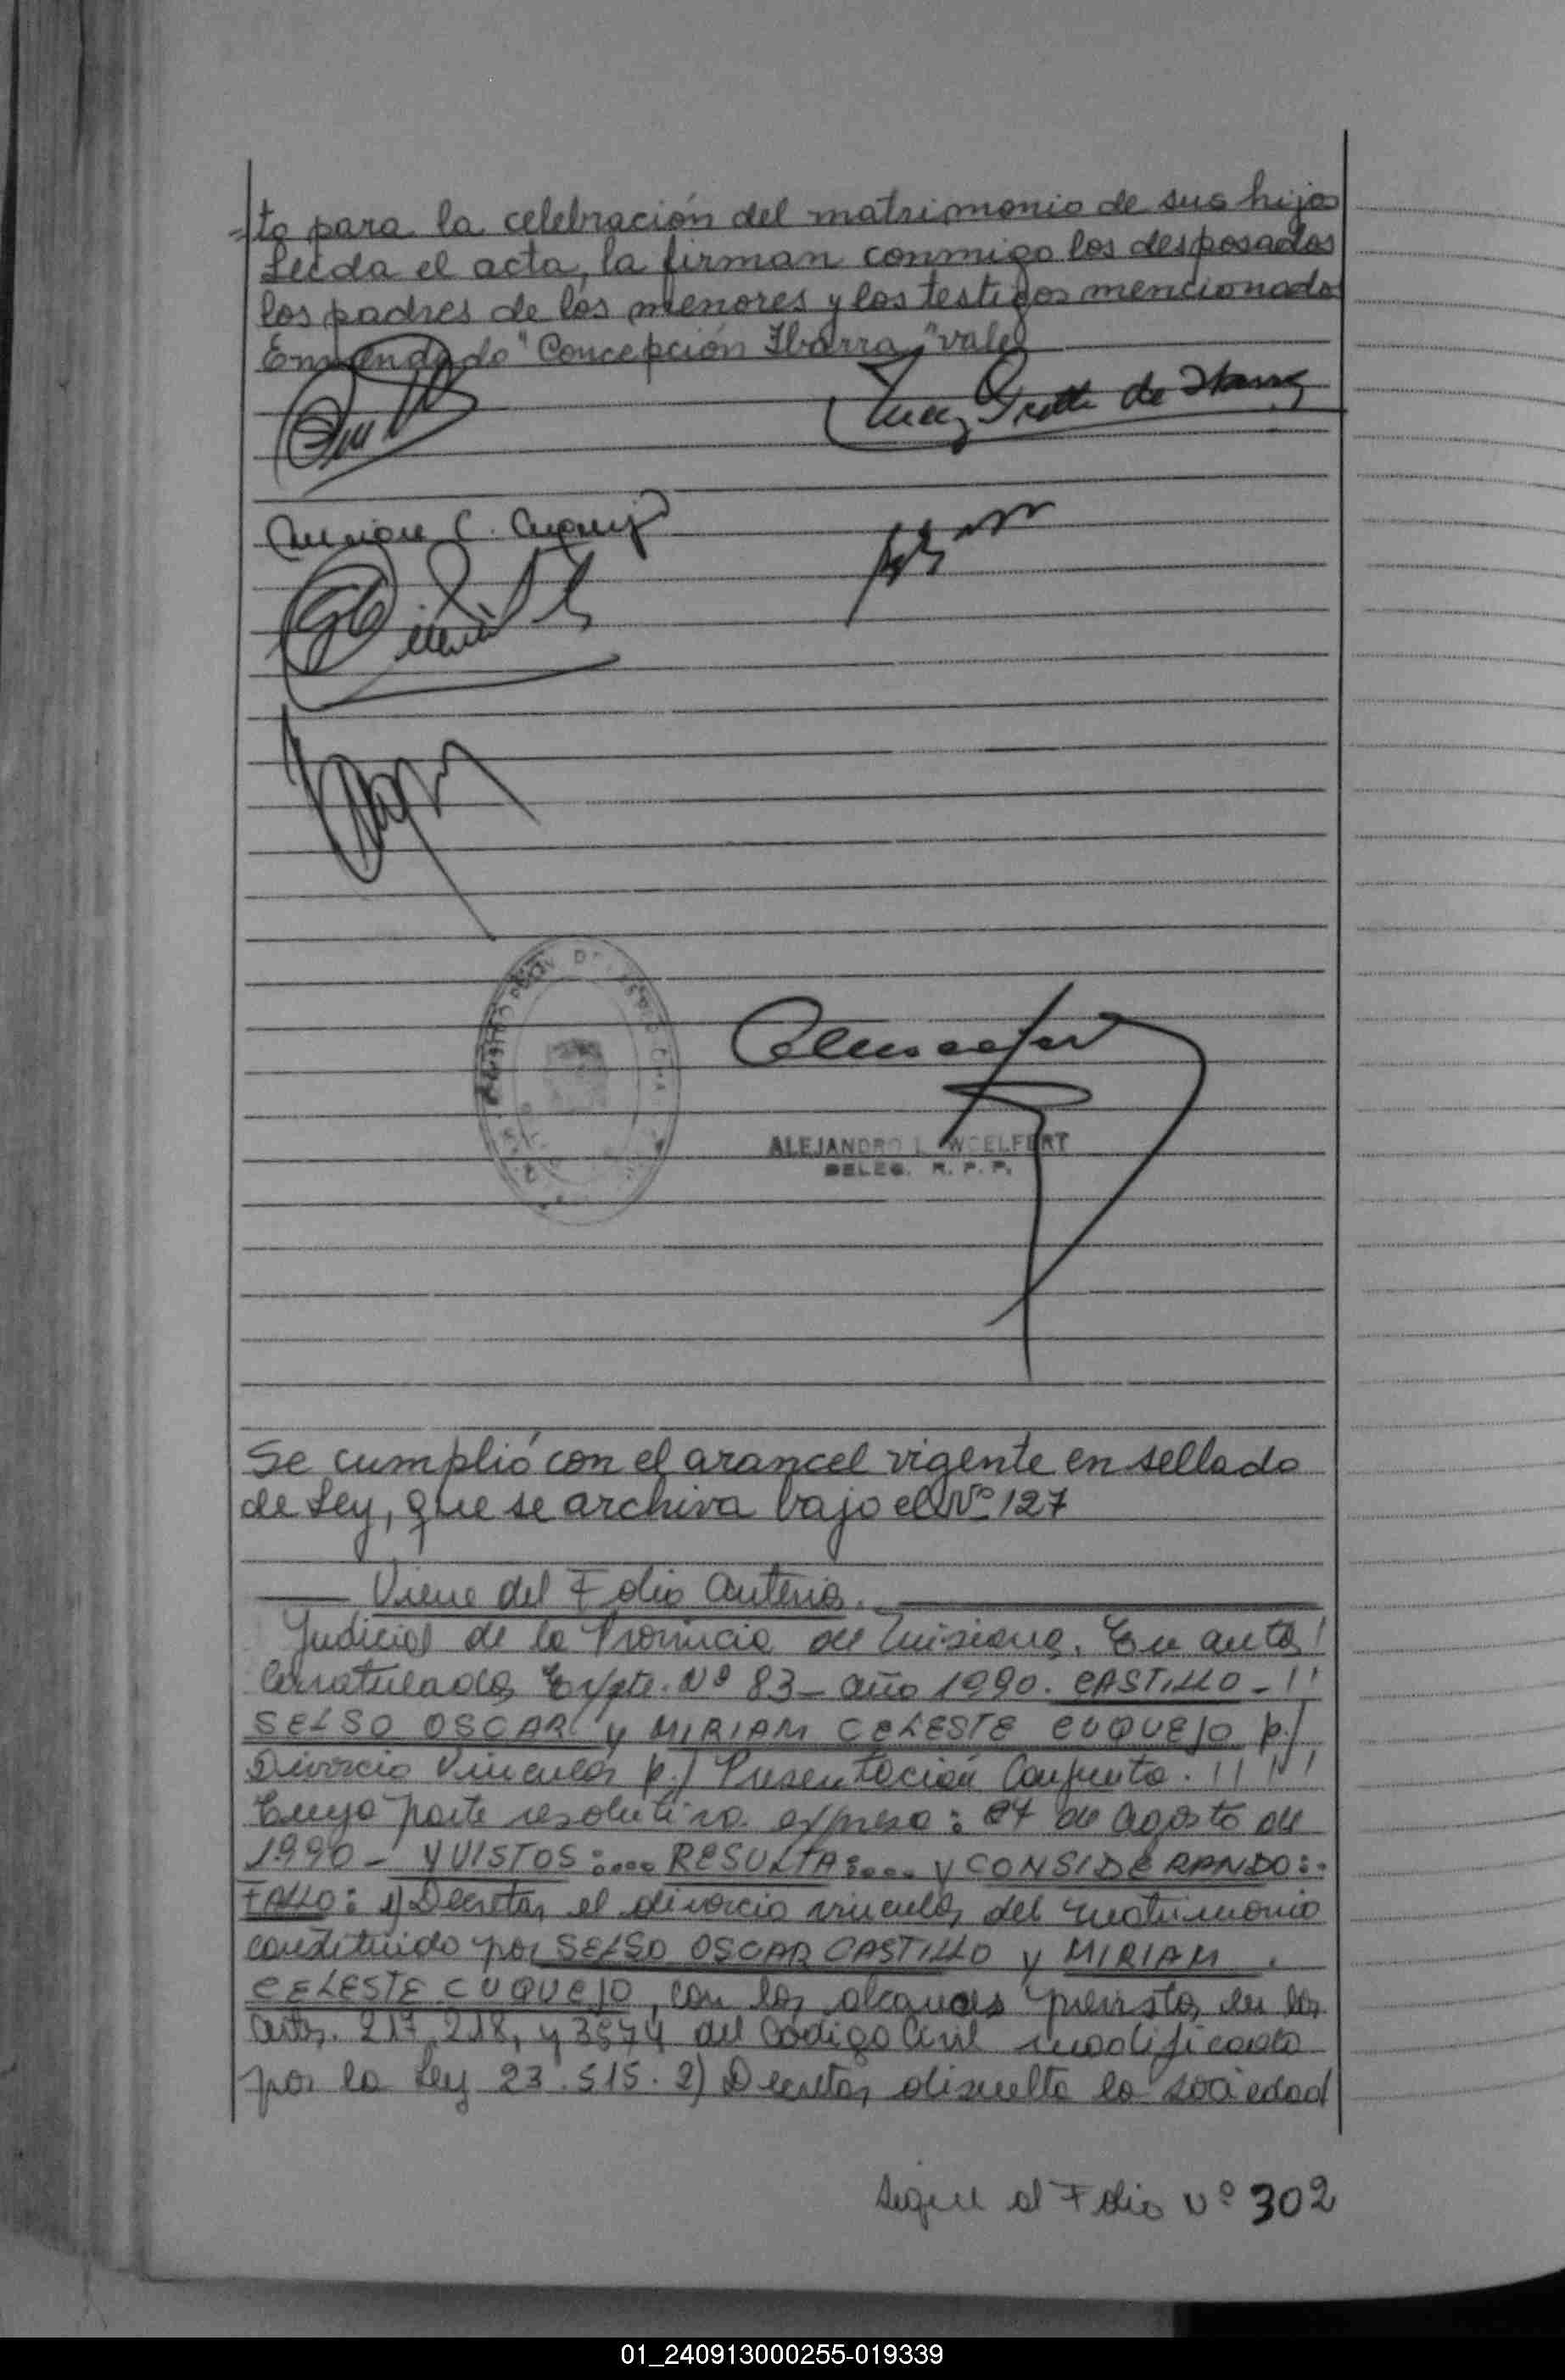 =to para la celebración del matrimonio de sus hijos
Leída el acta, la firman conmigo los desposados
los padres de los menores y los testigos mencionados
Enmendado "Concepción Ibarra," vale
de Ibarra
ALEJANDRO L. WOELFERT
DELEG. R. P. P.
Se cumplió con el arancel vigente en sellado
de Ley, que se archiva bajo el Nº 127
Viene del Folio Anterior.
Judicial de la Provincia de En autos
Caratulados Expte. Nº 83- año 1990. CASTILLO - !!
SELSO OSCAR y MIRIAM CELESTE CUQUEJO p./
Divorcio Vincular p./ Presentación Conjunta. !!!!!
Cuya parte resolutiva expresa: 27 de Agosto de
1990 - Y VISTOS:.... RESULTA:.... y CONSIDERANDO:.
FALLO: 1) Decretar el divorcio vincular del matrimonio
constituido por SELSO OSCAR CASTILLO y MIRIAM
CELESTE CUQUEJO, con los alcances previstos en los
arts. 217, 218, y 3574 del Código Civil modificado
por la Ley 23.515. 2) Decretar disuelta la sociedad
Sigue al Folio Nº 302
01_240913000255-019339